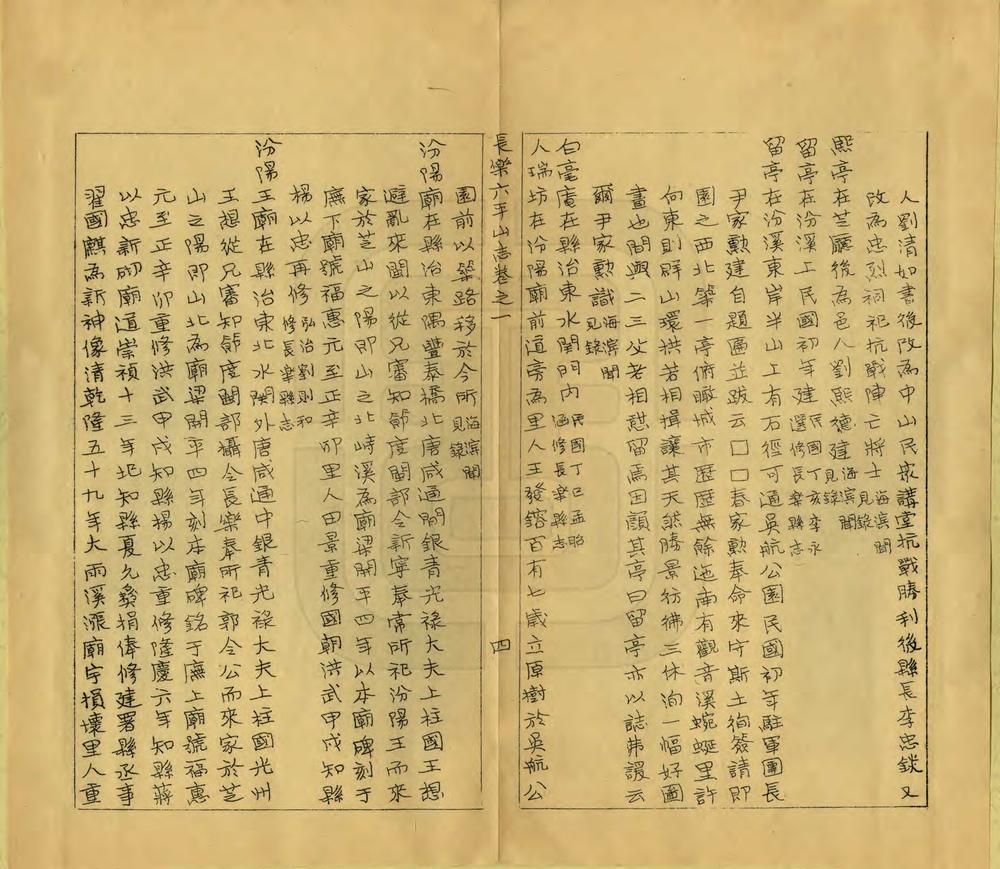 人劉清如書後改為中山民衆講堂抗戰勝利後縣長李忠錂又
改為忠烈祠祀抗戰陣亡將士海濱聞見錄
熙亭在芝廳後為邑人劉熙德建海濱聞見錄
留亭在汾溪上民國初年建民國丁亥李永選修長樂縣志
留亭在汾溪東岸半山上有石徑可通吳航公園民國初年駐軍團長
尹家勲建自題匾並跋云囗囗春家勲奉命來守斯土徇簽請即
園之西北築一亭俯瞰城市歷歷無餘迤南有觀音溪蜿蜒里許
向東則群山環拱若相揖讓其天然勝景彷彿三休洵一幅好圖
畫也間與二三父老相憇留焉因顏其亭曰留亭亦以誌弗諼云
爾尹家勲識海濱聞見錄
白毫庵在縣治東水関門內民國丁巳孟昭涵修長樂縣志
人瑞坊在汾陽廟前道旁為里人王發鎔百有七歲立原樹於吳航公
長樂六平山志卷之一 四
園前以築路移於今所海濱聞見錄
汾陽廟在縣治東隅豐泰橋北唐咸通間銀青光祿大夫上柱國王想
避亂來閩以從兄審知節度閩部令新寧奉常所祀汾陽王而來
家於芝山之陽即山之北峙溪為廟梁開平四年以本廟碑刻于
廡下廟號福惠元至正辛卯里人田景重修國朝洪武甲戍知縣
楊以忠再修弘治劉則和修長樂縣志
汾陽王廟在縣治東北水関外唐咸通中銀青光祿大夫上柱國光州
王想從兄審知節度閩部攝令長樂奉所祀郭令公而來家於芝
山之陽即山北為廟梁開平四年刻本廟碑銘于廡上廟號福惠
元至正辛卯重修洪武甲戍知縣楊以忠重修隆慶六年知縣蔣
以忠新砌廟道崇禎十三年北知縣夏允彝捐俸修建署縣丞事
濯國麒為新神像清乾隆五十九年大雨溪漲廟宇損壞里人重